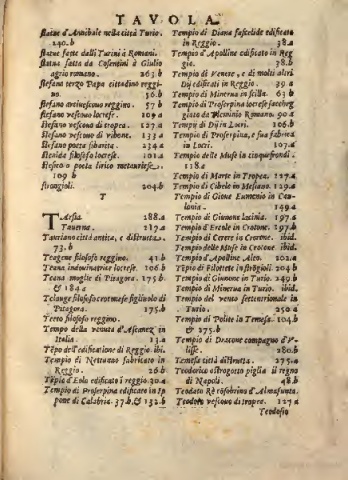 TAVOLA
statue d'Annibale nella città Turio.
240.b
statue fatte dalli Turini à Romani.
statua fatta da Cosentini à Giulio
agrio romano. 265.b
stefano terzo Papa cittadino reggi-
no. 56.b
stefano arcivescovo reggino. 57.b
stefano vescovo locrese. 109.a
stefano vescovo di tropea. 127.a
stefano vescovo di vibone. 133.a
stefano poeta sibarita. 234.a
stenida filosofo locrese. 101.a
stesico o poeta lirico metaurirese.
109.b
strongioli. 204.b
T
TArsia. 288.a
Taverna. 217.a
Tauriano città antica, e distrutta.
73.b
Teagene filosofo reggino. 41.b
Teana indovinatrice locrese. 106.b
Teana moglie di Pitagora. 175.b
& 184.a
Telauge filosofo crotonese figliuolo di
Pitagora. 175.b
Teeto filosofo reggino.
Tempo della venuta d'Ascenez in
Italia. 13.a
Tẽpo dell'edificatione di Reggio. ibi.
Tempio di Nettunno fabricato in
Reggio. 26.b
Tẽpio d'Eolo edificato ĩ reggio. 30.a
Tempio di Proserpina edificato in Ip
pone di Calabria. 37.b, & 132.b
Tempio di Diana fascelide edificato
in Reggio. 38.a
Tempio d'Apolline edificato in Reg
gio. 38.b
Tempio di Venere, e di molti altri
Dij edificati in Reggio. 39.a
Tempio di Minerva in scilla. 63.b
Tempio di Proserpina locrese saccheg
giato da Pleminio Romano. 90.a
Tempio di Dij in Locri. 106.b
Tempio di Proserpina, e sua fabrica
in Locri. 107.a
Tempio delle Muse in cinquefrondi.
118.a
Tempio di Marte in Tropea. 127.a
Tempio di Cibele in Mesiano. 129.a
Tempio di Giove Eumenio in Cau
lonia. 149.a
Tempio di Giunone lacinia. 197.a
Tempio d'Ercole in Crotone. 197.b
Tempio di Cerere in Crotone. ibid.
Tempio delle Muse in Crotone. ibid.
Tempio d'Apolline Aleo. 202.a
Tẽpio de Filottete in strõgioli. 204.b
Tempio di Giunone in Turio. 249.b
Tempio di Minerva in Turio. ibid.
Tempio del vento settentrionale in
Turio. 250.a
Tempio di Polite in Temesa. 104.b
& 275.b
Tempio di Dracone compagno d'V-
lisse. 280.b
Temesa città distrutta. 275.a
Teodorico ostrogotto piglia il regno
di Napoli. 48.b
Teodato Rè rosobrino d'Almasunta.
Teodoro vescovo di tropea. 127.a
Teodosio